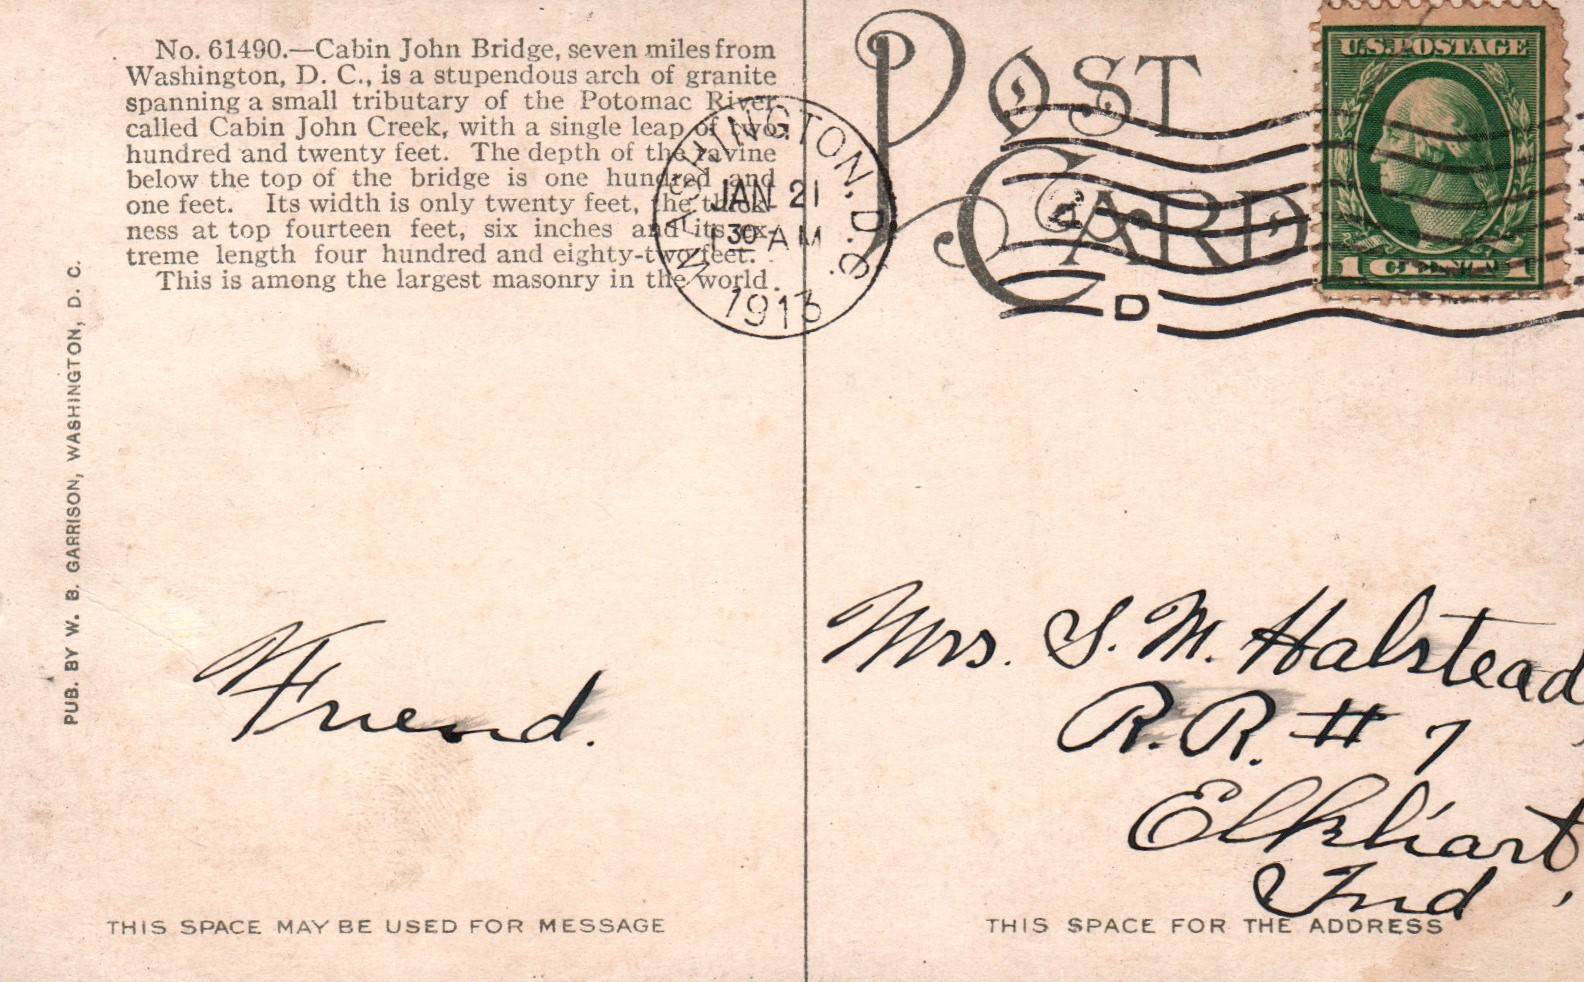 No. 61490.—Cabin John Bridge, seven miles from
Washington, D. C., is a stupendous arch of granite
spanning a small tributary of the Potomac River
called Cabin John Creek, with a single leap of two
hundred and twenty feet. The depth of the ravine
below the top of the bridge is one hundred and
one feet. Its width is only twenty feet, the thick-
ness at top fourteen feet, six inches and its ex-
treme length four hundred and eighty-two feet.
This is among the largest masonry in the world.
PUB. BY W. B. GARRISON, WASHINGTON, D. C.
Friend.
THIS SPACE MAY BE USED FOR MESSAGE
WASHINGTON, D.C.
JAN 21
1 30 AM
1913
POST
CARD
D
U.S. POSTAGE
1 CENT 1
Mrs. S. M. Halstead,
R. R. # 7
Elkhart,
Ind
THIS SPACE FOR THE ADDRESS